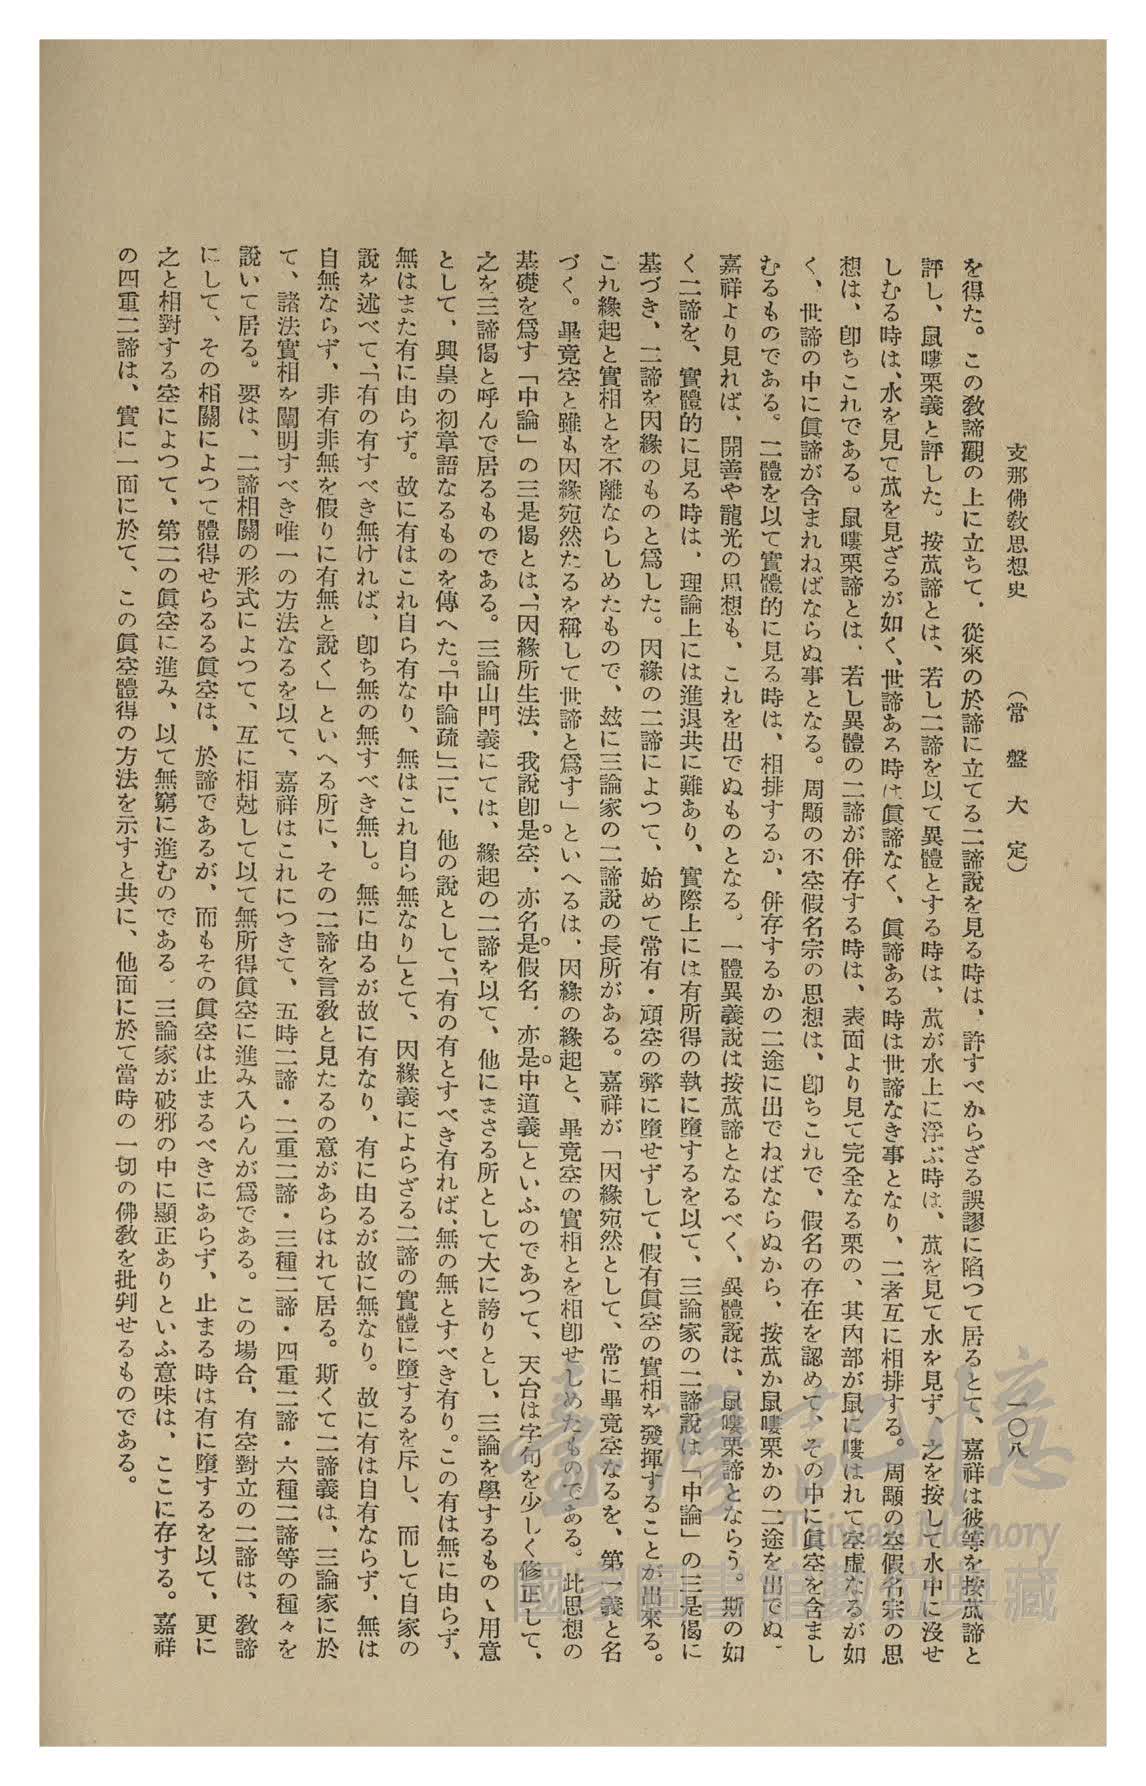 支那佛敎思想史　（常盤大定）　一〇八
を得た。この敎諦觀の上に立ちて、從來の於諦に立てる二諦說を見る時は、許すべからざる誤謬に陷つて居るとて、嘉祥は彼等を按苽諦と
評し、鼠嘍栗義と評した。按苽諦とは、若し二諦を以て異體とする時は、苽が水上に浮ぶ時は、苽を見て水を見ず、之を按して水中に沒せ
しむる時は、水を見て苽を見ざるが如く、世諦ある時は眞諦なく、眞諦ある時は世諦なき事となり、二者互に相排する。周顒の空假名宗の思
想は、卽ちこれである。鼠嘍栗諦とは、若し異體の二諦が併存する時は、表面より見て完全なる栗の、其內部が鼠に嘍はれて空虛なるが如
く、世諦の中に眞諦が含まれねばならぬ事となる。周顒の不空假名宗の思想は、卽ちこれで、假名の存在を認めて、その中に眞空を含まし
むるものである。二體を以て實體的に見る時は、相排するか、併存するかの二途に出でねばならぬから、按苽か鼠嘍栗かの二途を出でぬ。
嘉祥より見れば、開善や龍光の思想も、これを出でぬものとなる。一體異義說は按苽諦となるべく、異體說は、鼠嘍栗諦とならう。斯の如
く二諦を、實體的に見る時は、理論上には進退共に難あり、實際上には有所得の執に墮するを以て、三論家の二諦說は「中論」の三是偈に
基づき、二諦を因緣のものと爲した。因緣の二諦によつて、始めて常有・頑空の弊に墮せずして、假有眞空の實相を發揮することが出來る。
これ緣起と實相とを不離ならしめたもので、玆に三論家の二諦說の長所がある。嘉祥が「因緣宛然として、常に畢竟空なるを、第一義と名
づく。畢竟空と雖も因緣宛然たるを稱して世諦と爲す」といへるは、因緣の緣起と、畢竟空の實相とを相卽せしめたものである。此思想の
基礎を爲す「中論」の三是偈とは、「因緣所生法、我說卽是空、亦名是假名、亦是中道義」といふのであつて、天台は字句を少しく修正して、
之を三諦偈と呼んで居るものである。三論山門義にては、緣起の二諦を以て、他にまさる所として大に誇りとし、三論を學するものゝ用意
として、興皇の初章語なるものを傳へた。「中論疏」二に、他の說として、「有の有とすべき有れば、無の無とすべき有り。この有は無に由らず、
無はまた有に由らず。故に有はこれ自ら有なり、無はこれ自ら無なり」とて、因緣義によらざる二諦の實體に墮するを斥し、而して自家の
說を述べて、「有の有すべき無ければ、卽ち無の無すべき無し。無に由るが故に有なり、有に由るが故に無なり。故に有は自有ならず、無は
自無ならず、非有非無を假りに有無と說く」といへる所に、その二諦を言敎と見たるの意があらはれて居る。斯くて二諦義は、三論家に於
て、諸法實相を闡明すべき唯一の方法なるを以て、嘉祥はこれにつきて、五時二諦・二重二諦・三種二諦・四重二諦・六種二諦等の種々を
說いて居る。要は、二諦相關の形式によつて、互に相尅して以て無所得眞空に進み入らんが爲である。この場合、有空對立の二諦は、敎諦
にして、その相關によつて體得せらるる眞空は、於諦であるが、而もその眞空は止まるべきにあらず、止まる時は有に墮するを以て、更に
之と相對する空によつて、第二の眞空に進み、以て無窮に進むのである。三論家が破邪の中に顯正ありといふ意味は、ここに存する。嘉祥
の四重二諦は、實に一面に於て、この眞空體得の方法を示すと共に、他面に於て當時の一切の佛敎を批判せるものである。
臺灣記憶
Taiwan Memory
國家圖書館數位典藏